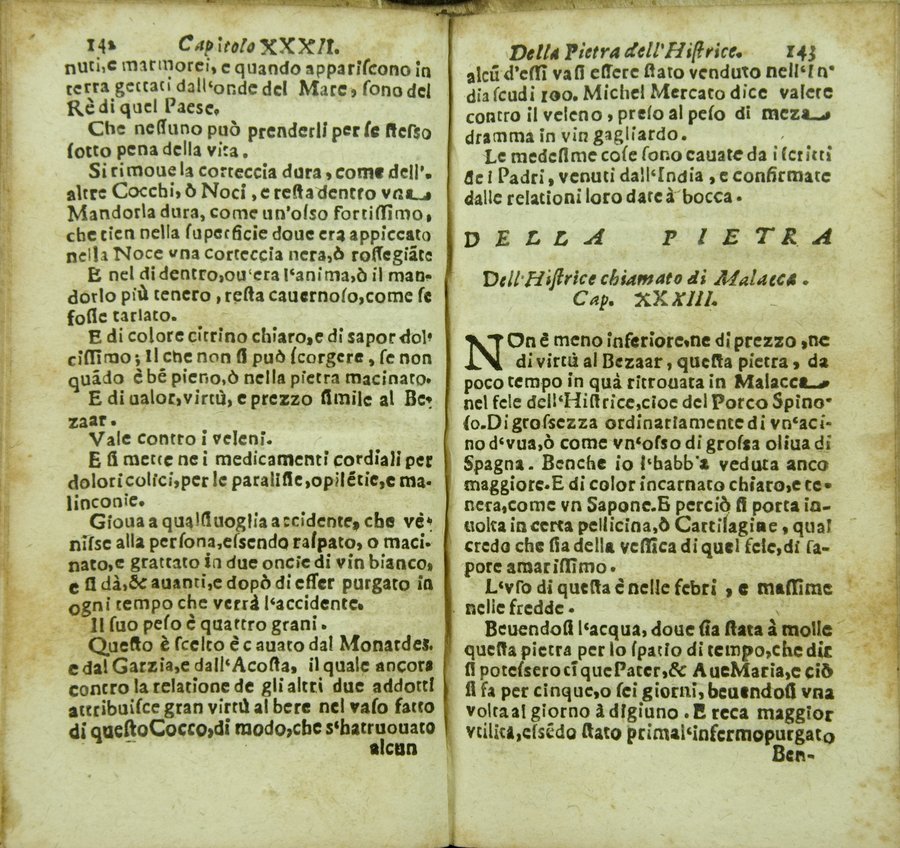 142 Capitolo XXXII.
nuti, e marmorei, e quando appariſcono in
terra gettati dall'onde del Mare, ſono del
Rè di quel Paese.
Che neſſuno può prenderli per ſe ſteſſo
ſotto pena della vita.
Si rimoue la corteccia dura, come dell'
altre Cocchi, ò Noci, e reſta dentro vna
Mandorla dura, come un'oſso fortiſſimo,
che tien nella ſuperficie doue era appiccato
nella Noce vna corteccia nera, ò roſſegiãte
E nel di dentro, ou'era l'anima, ò il man-
dorlo più tenero, reſta cauernoſo, come ſe
foſſe tarlato.
E di colore citrino chiaro, e di sapor dol-
ciſſimo; Il che non ſi può ſcorgere, ſe non
quãdo è bẽ pieno, ò nella pietra macinato.
E di ualor, virtù, e prezzo ſimile al Be-
zaar.
Vale contro i veleni.
E ſi mette ne i medicamenti cordiali per
dolori colici, per le paraliſie, opilẽtie, e ma-
linconie.
Gioua a qualſiuoglia accidente, che vẽ-
niſse alla perſona, eſsendo raſpato, o maci-
nato, e grattato in due oncie di vin bianco,
e ſi dà, & auanti, e dopò di eſſer purgato in
ogni tempo che verrà l'accidente.
Il ſuo peſo è quattro grani.
Queſto è ſcelto è cauato dal Monardes.
e dal Garzia, e dall'Acoſta, il quale ancora
contro la relatione de gli altri due addotti
attribuiſce gran virtù al bere nel vaſo fatto
di queſto Cocco, di modo, che s'ha trouato
alcun
Della Pietra dell'Hiſtrice. 143
alcũ d'eſſi vaſi eſſere ſtato venduto nell'In-
dia ſcudi 100. Michel Mercato dice valere
contro il veleno, preſo al peſo di meza
dramma in vin gagliardo.
Le medeſime coſe ſono cauate da i ſcritti
de i Padri, venuti dall'India, e confirmate
dalle relationi loro date à bocca.
DELLA PIETRA
Dell'Hiſtrice chiamato di Malacca.
Cap. XXXIII.
NOn è meno inferiore, ne di prezzo, ne
di virtù al Bezaar, queſta pietra, da
poco tempo in quà ritrouata in Malacca
nel fele dell'Hiſtrice, cioe del Porco Spino-
ſo. Di groſsezza ordinariamente di vn'aci-
no d'vua, ò come vn'oſso di groſsa oliua di
Spagna. Benche io l'habb'a veduta anco
maggiore. E di color incarnato chiaro, e te-
nera, come vn Sapone. E perciò ſi porta in-
uolta in certa pellicina, ò Cartilagine, qual
credo che ſia della veſſica di quel fele, di ſa-
pore amariſſimo.
L'vſo di queſta è nelle febri, e maſſime
nelle fredde.
Beuendoſi l'acqua, doue ſia ſtata à molle
queſta pietra per lo ſpatio di tempo, che dir
ſi poteſsero cĩque Pater, & Aue Maria, e ciò
ſi fa per cinque, o ſei giorni, beuendoſi vna
volta al giorno à digiuno. E reca maggior
vtilità, eſsẽdo ſtato prima l'infermo purgato
Ben-